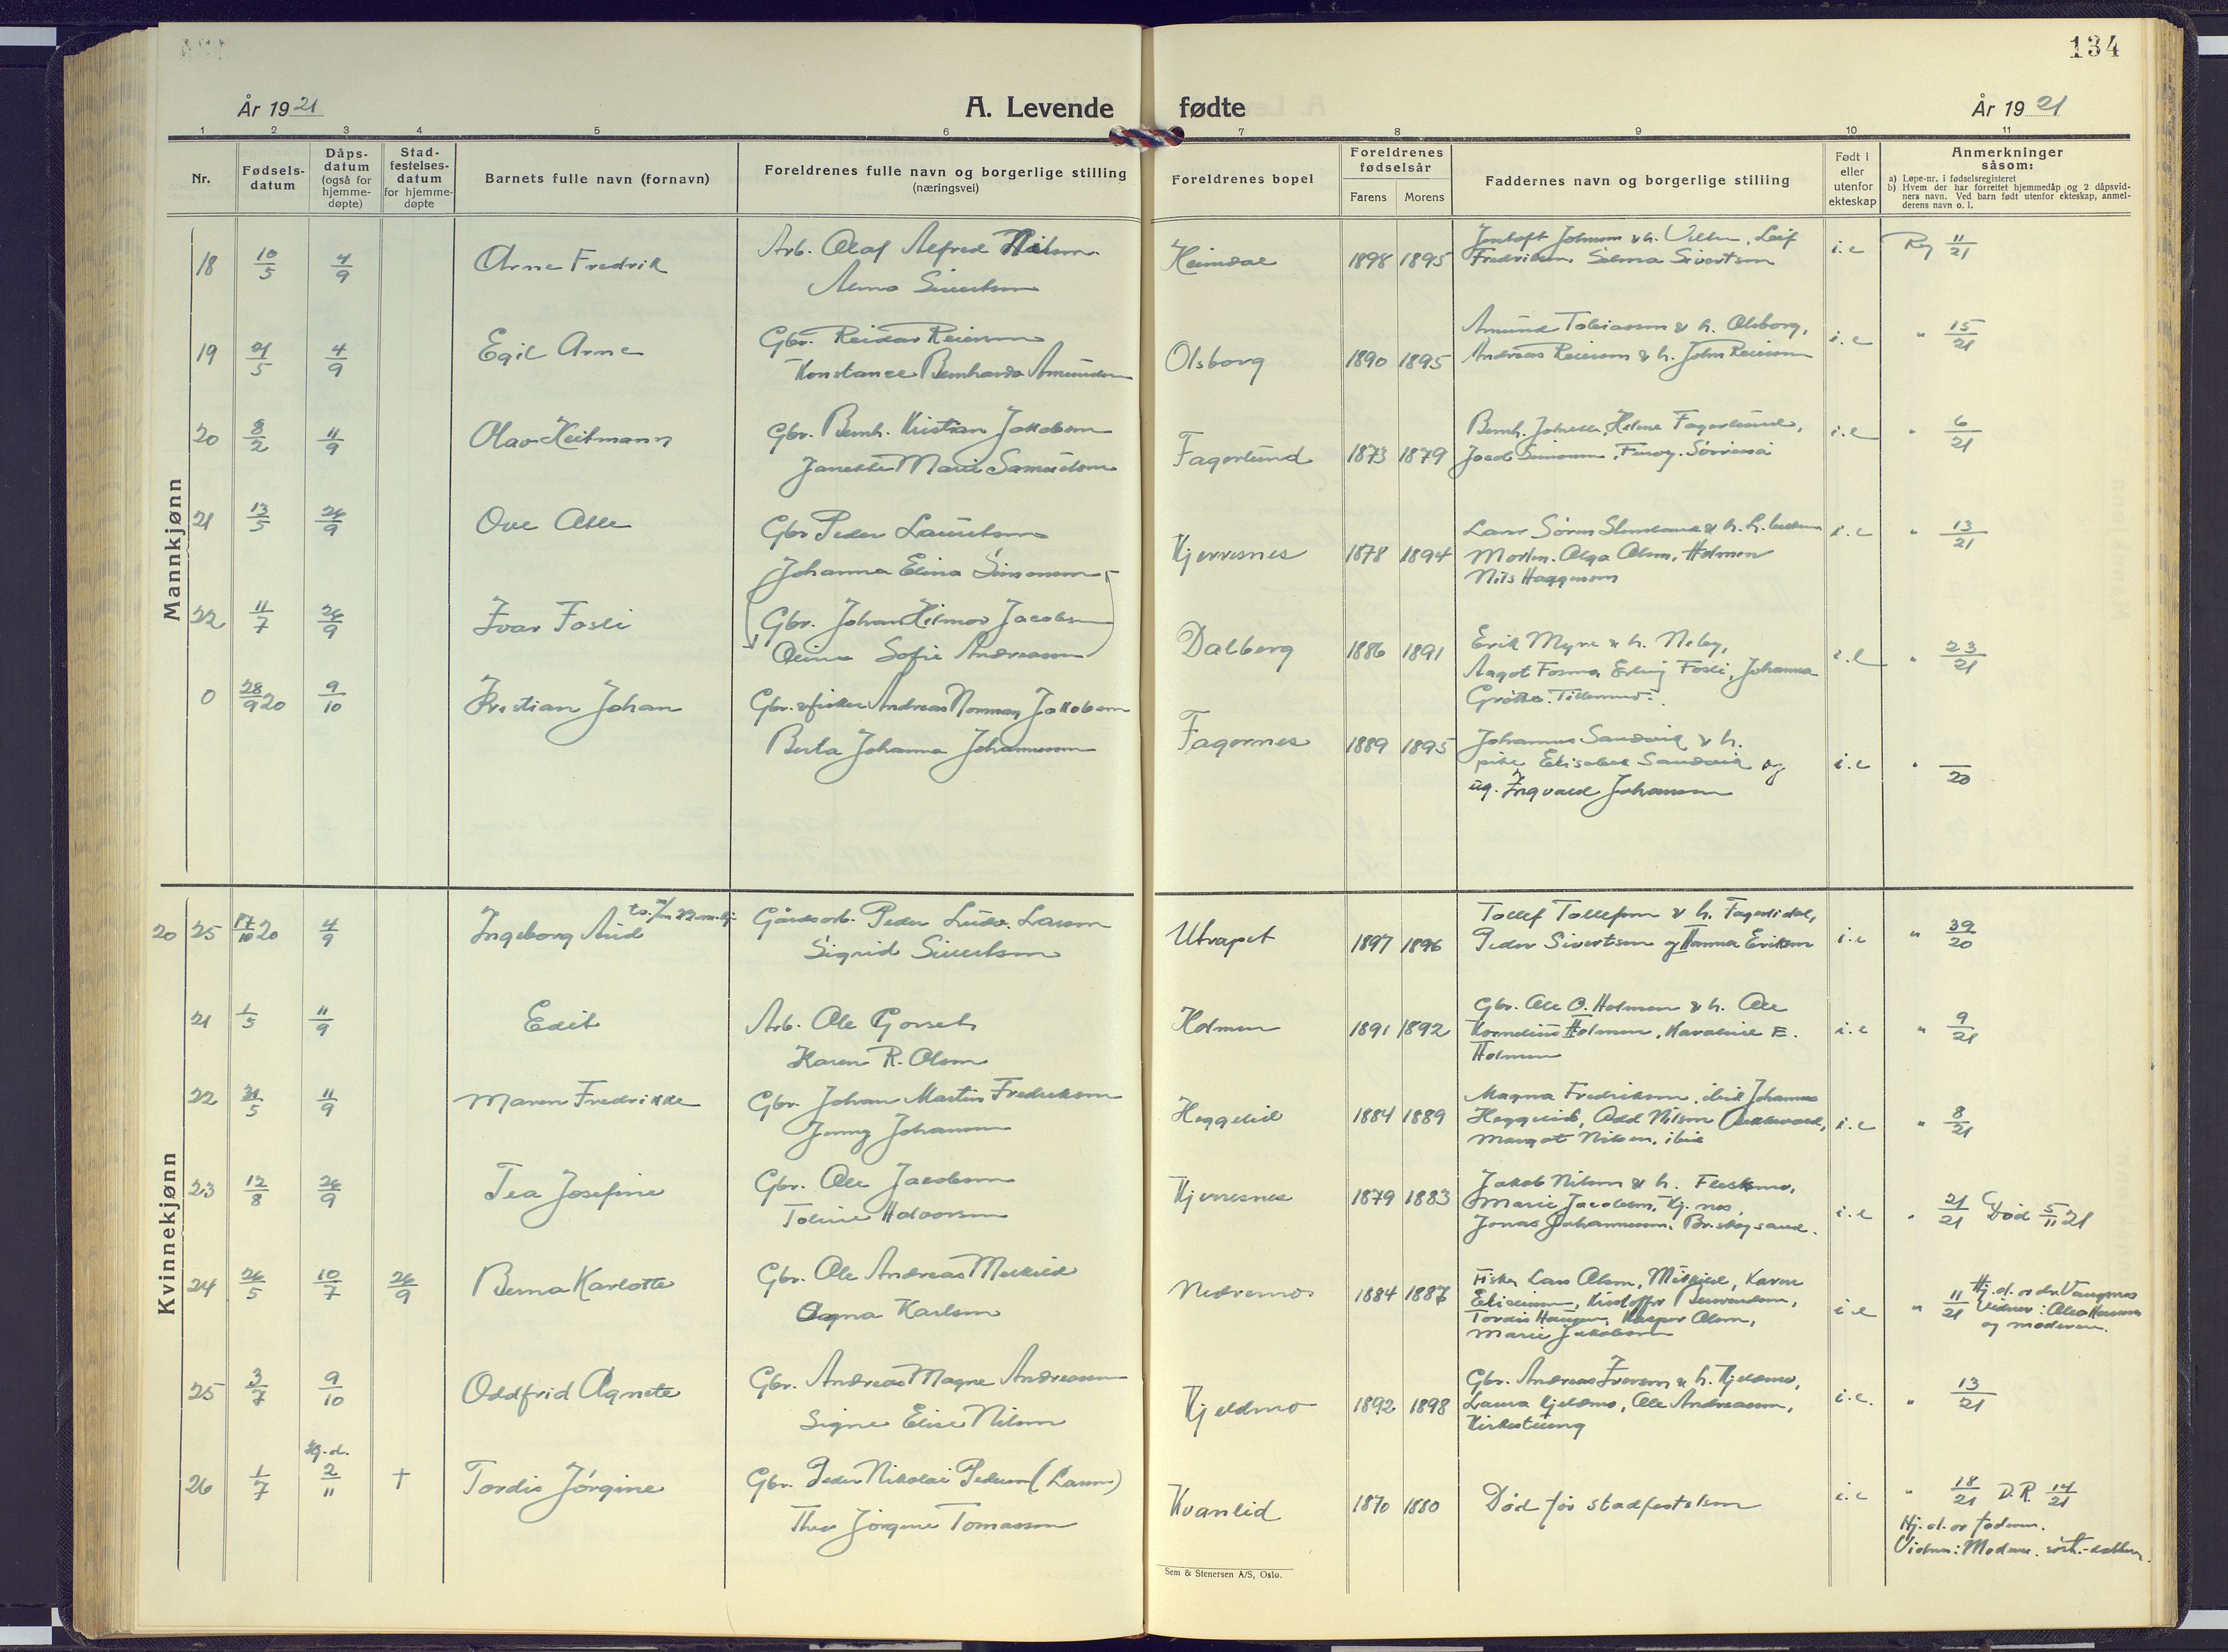 134
År 19 21
A. Levende fødte
År 19 21
1 2 3 4 5 6 7 8 9 10 11
Nr.
Fødsels-datum
Dåps-datum (også for hjemme-døpte)
Stad-festelses-datum for hjemme-døpte
Barnets fulle navn (fornavn)
Foreldrenes fulle navn og borgerlige stilling (næringsvei)
Foreldrenes bopel
Foreldrenes fødselsår
Farens Morens
Faddernes navn og borgerlige stilling
Født i eller utenfor ekteskap
Anmerkninger såsom:
a) Løpe-nr. i fødselsregisteret
b) Hvem der har forrettet hjemmedåp og 2 dåpsvid-
ners navn. Ved barn født utenfor ekteskap, anmel-
derens navn o. l.
Mannkjønn
18 10/5 4/9 Arne Fredrik Arb. Olaf Alfred
Sivertsen
Heimdal 1898 1895
Fredriksen, Selma Sivertsen i.e Reg 11/21
19 21/5 4/9 Egil Arne Gbr. Reidar Reiersen
Konstance Bernharda Amundsen
Olsborg 1890 1895 Amund Tobiassen & h. Olsborg,
Andreas Reiersen & h. John Reiersen i.e " 15/21
20 8/2 11/9 Olav Heitmann Gbr. Bernh. Kristian Jakobsen
Janette Marie Samuelsen
Fagerlund 1873 1879 Bernh. Helene Fagerlund,
Jacob Simonsen i.e " 6/21
21 13/5 26/9 Ove Atle Gbr Peder Lauritsen
Johanna Elina Simonsen
Kjerresnes 1878 1894 Olga Olsen, Holmen
Nils Haagensen i.e " 13/21
22 11/7 26/9 Ivar Fosli Gbr. Johan Hilmar Jacobsen
Sofie Andreassen
Dalberg 1886 1891 Erik Myre & h.
Aagot Fosmo Erling Fosli, Johanna
i.e " 23/21
0 28/9 20 9/10 Kristian Johan Gbr. & fisker Andreas Norman Jakobsen
Berta Johanna Johannessen
Fagernes 1889 1895 Johannes Sandvik & h.
pike Elisabet Sandvik og
ug. Ingvald Johansen i.e " 20
Kvinnekjønn
20 25 17/10 20 4/9 Ingeborg Aud Gårdsarb. Peder Ludv. Larsen
Sigrid Sivertsen
Utvapet 1897 1896 Tollef Tollefsen & h. Fagerlidal,
Peder Sivertsen og Hanna Eriksen i.e " 39/20
21 1/5 11/9 Edit Arb. Ole Gorseth
Karen R. Olsen
Holmen 1891 1892 Gbr. Ole O. Holmen & h. Ole
Kornelius Holmen, E.
Holmen i.e " 9/21
22 31/5 11/9 Maren Fredrikke Gbr. Johan Martin Fredriksen
Jenny Johansen
Heggelid 1884 1889 Magna Fredriksen, ibid Johannes
Heggelid, Odd Nilsen
Margot Nilsen, ibid i.e " 8/21
23 12/8 26/9 Tea Josefine Gbr. Ole Jacobsen
Toline Halvorsen
Kjerresnes 1879 1883 Jakob Nilsen & h.
Marie Jacobsen, Kj. nes,
Jonas Johannessen, Br. skogsand. i.e " 21/21 Død 5/11 21
24 26/5 10/7 26/9 Berna Karlotte Gbr. Ole Andreas
Agna Karlsen
Nedremo 1884 1887 Fisker Lars Olsen,
Tordis Haugen, Kasper Olsen,
Marie Jakobsen i.e " 11/21 Hj. d. av
og moderen.
25 3/7 9/10 Oddfrid Agnete Gbr. Andreas Magne Andreassen
Signe Elise Nilsen
Kjeldmo 1892 1898 Gbr. Andreas Iversen & h. Kjeldmo,
Laura Kjeldmo, Ole Andreassen,
i.e. " 13/21
26 1/7 Hj. d. 2/11 † Tordis Jørgine Gbr. Peder Nikolai Pedersen (Larsen)
Thea Jørgine Tomassen
Kvanlid 1870 1880 Død før stadfestelsen i.e " 18/21 D.R. 14/21
Hj. d. av faderen.
Vidner: Moderen
Sem & Stenersen A/S, Oslo.